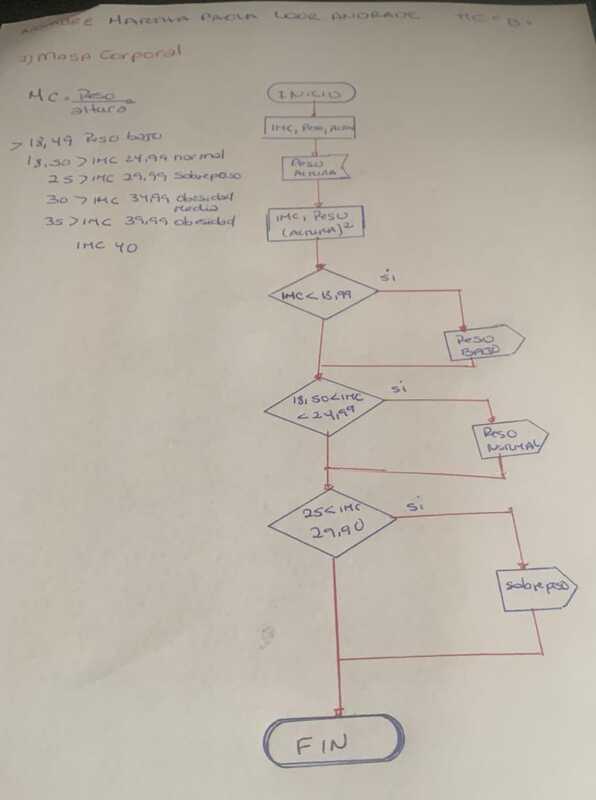 NOMBRE MARTHA PAOLA LOOR ANDRADE
1) Masa Corporal
MC = Peso
altura
> 18,49 Peso bajo
18,50 > IMC 24,99 normal
25 > IMC 29,99 Sobrepeso
30 > IMC 34,99 obesidad
media
35 > IMC 39,99 obesidad
IMC 40
INICIO
IMC, Peso, Altura
Peso
Altura
IMC, Peso
(ALTURA)²
IMC < 18,99
si
Peso
BAJO
18,50 < IMC
< 24,99
si
Peso
NORMAL
25 < IMC
29,90
si
Sobrepeso
FIN